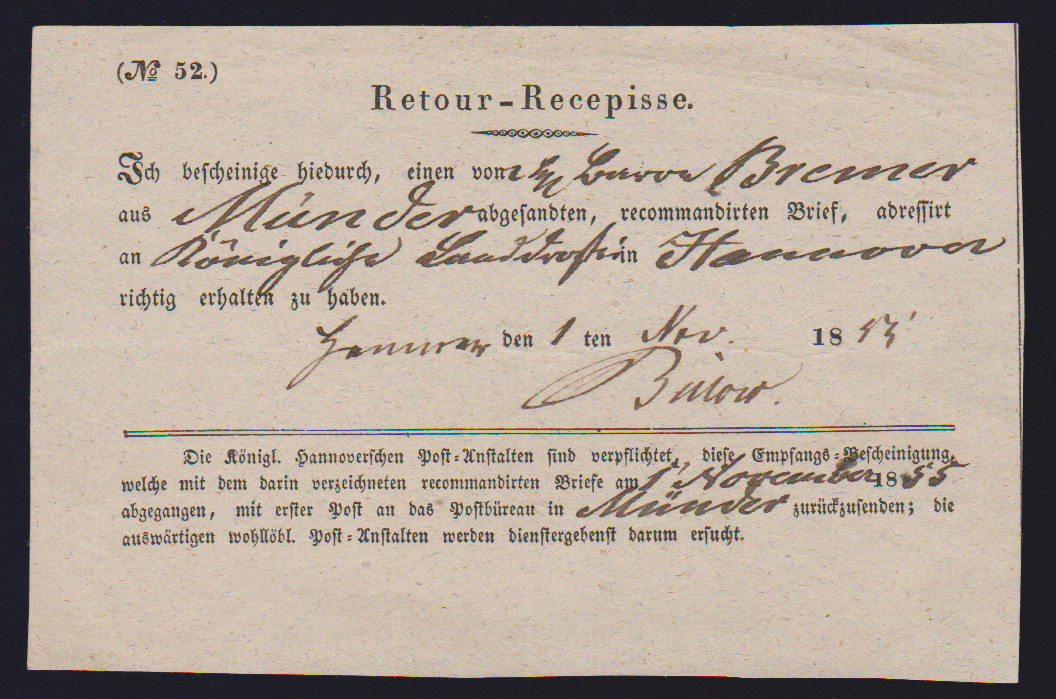 (No 52.)
Retour-Recepisse.
Ich bescheinige hiedurch, einen vom Bremer
aus Münder abgesandten, recommandirten Brief, adressirt
an Königliche Landdrostei in Hannover
richtig erhalten zu haben.
Hannover den 1 ten Nov. 1855
Bülow.
Die Königl. Hannoverschen Post-Anstalten sind verpflichtet, diese Empfangs-Bescheinigung,
welche mit dem darin verzeichneten recommandirten Briefe am 1 November 1855
abgegangen, mit erster Post an das Postbüreau in Münder zurückzusenden; die
auswärtigen wohllöbl. Post-Anstalten werden dienstergebenst darum ersucht.